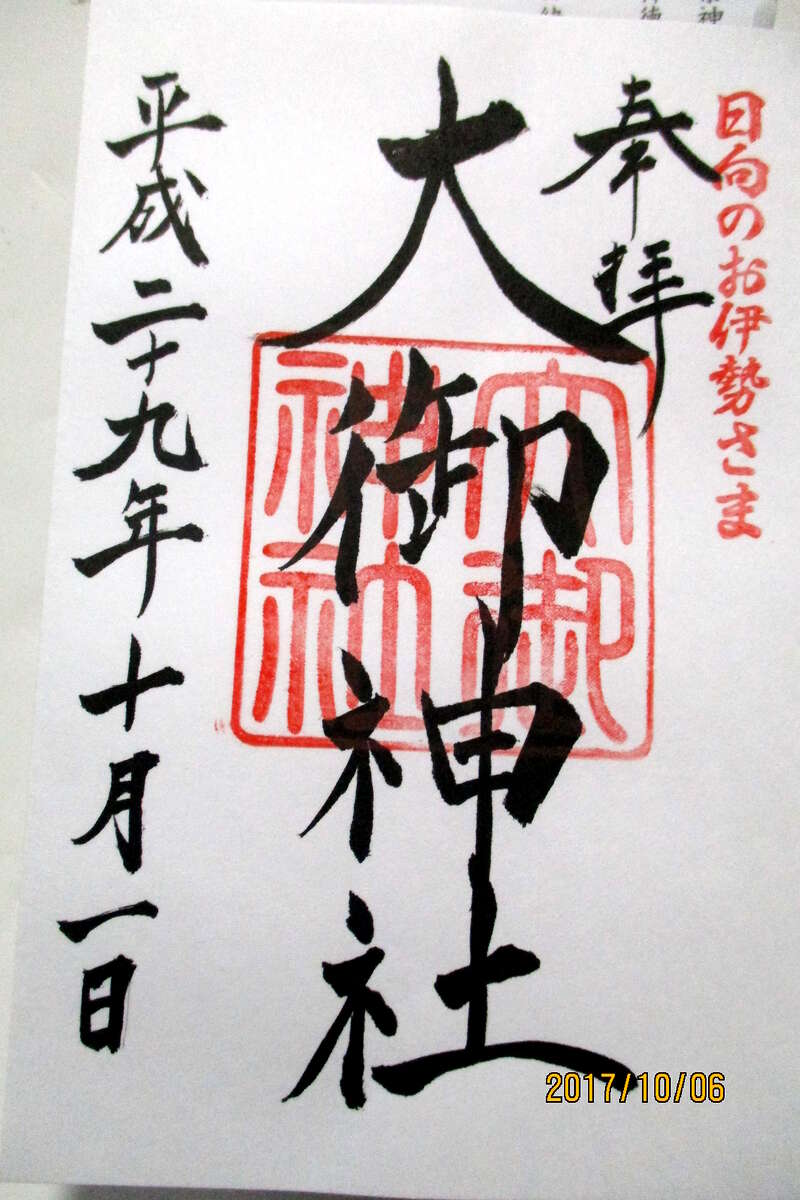 日向のお伊勢さま
奉拝
大御神社
大御神社
平成二十九年十月一日
2017/10/06